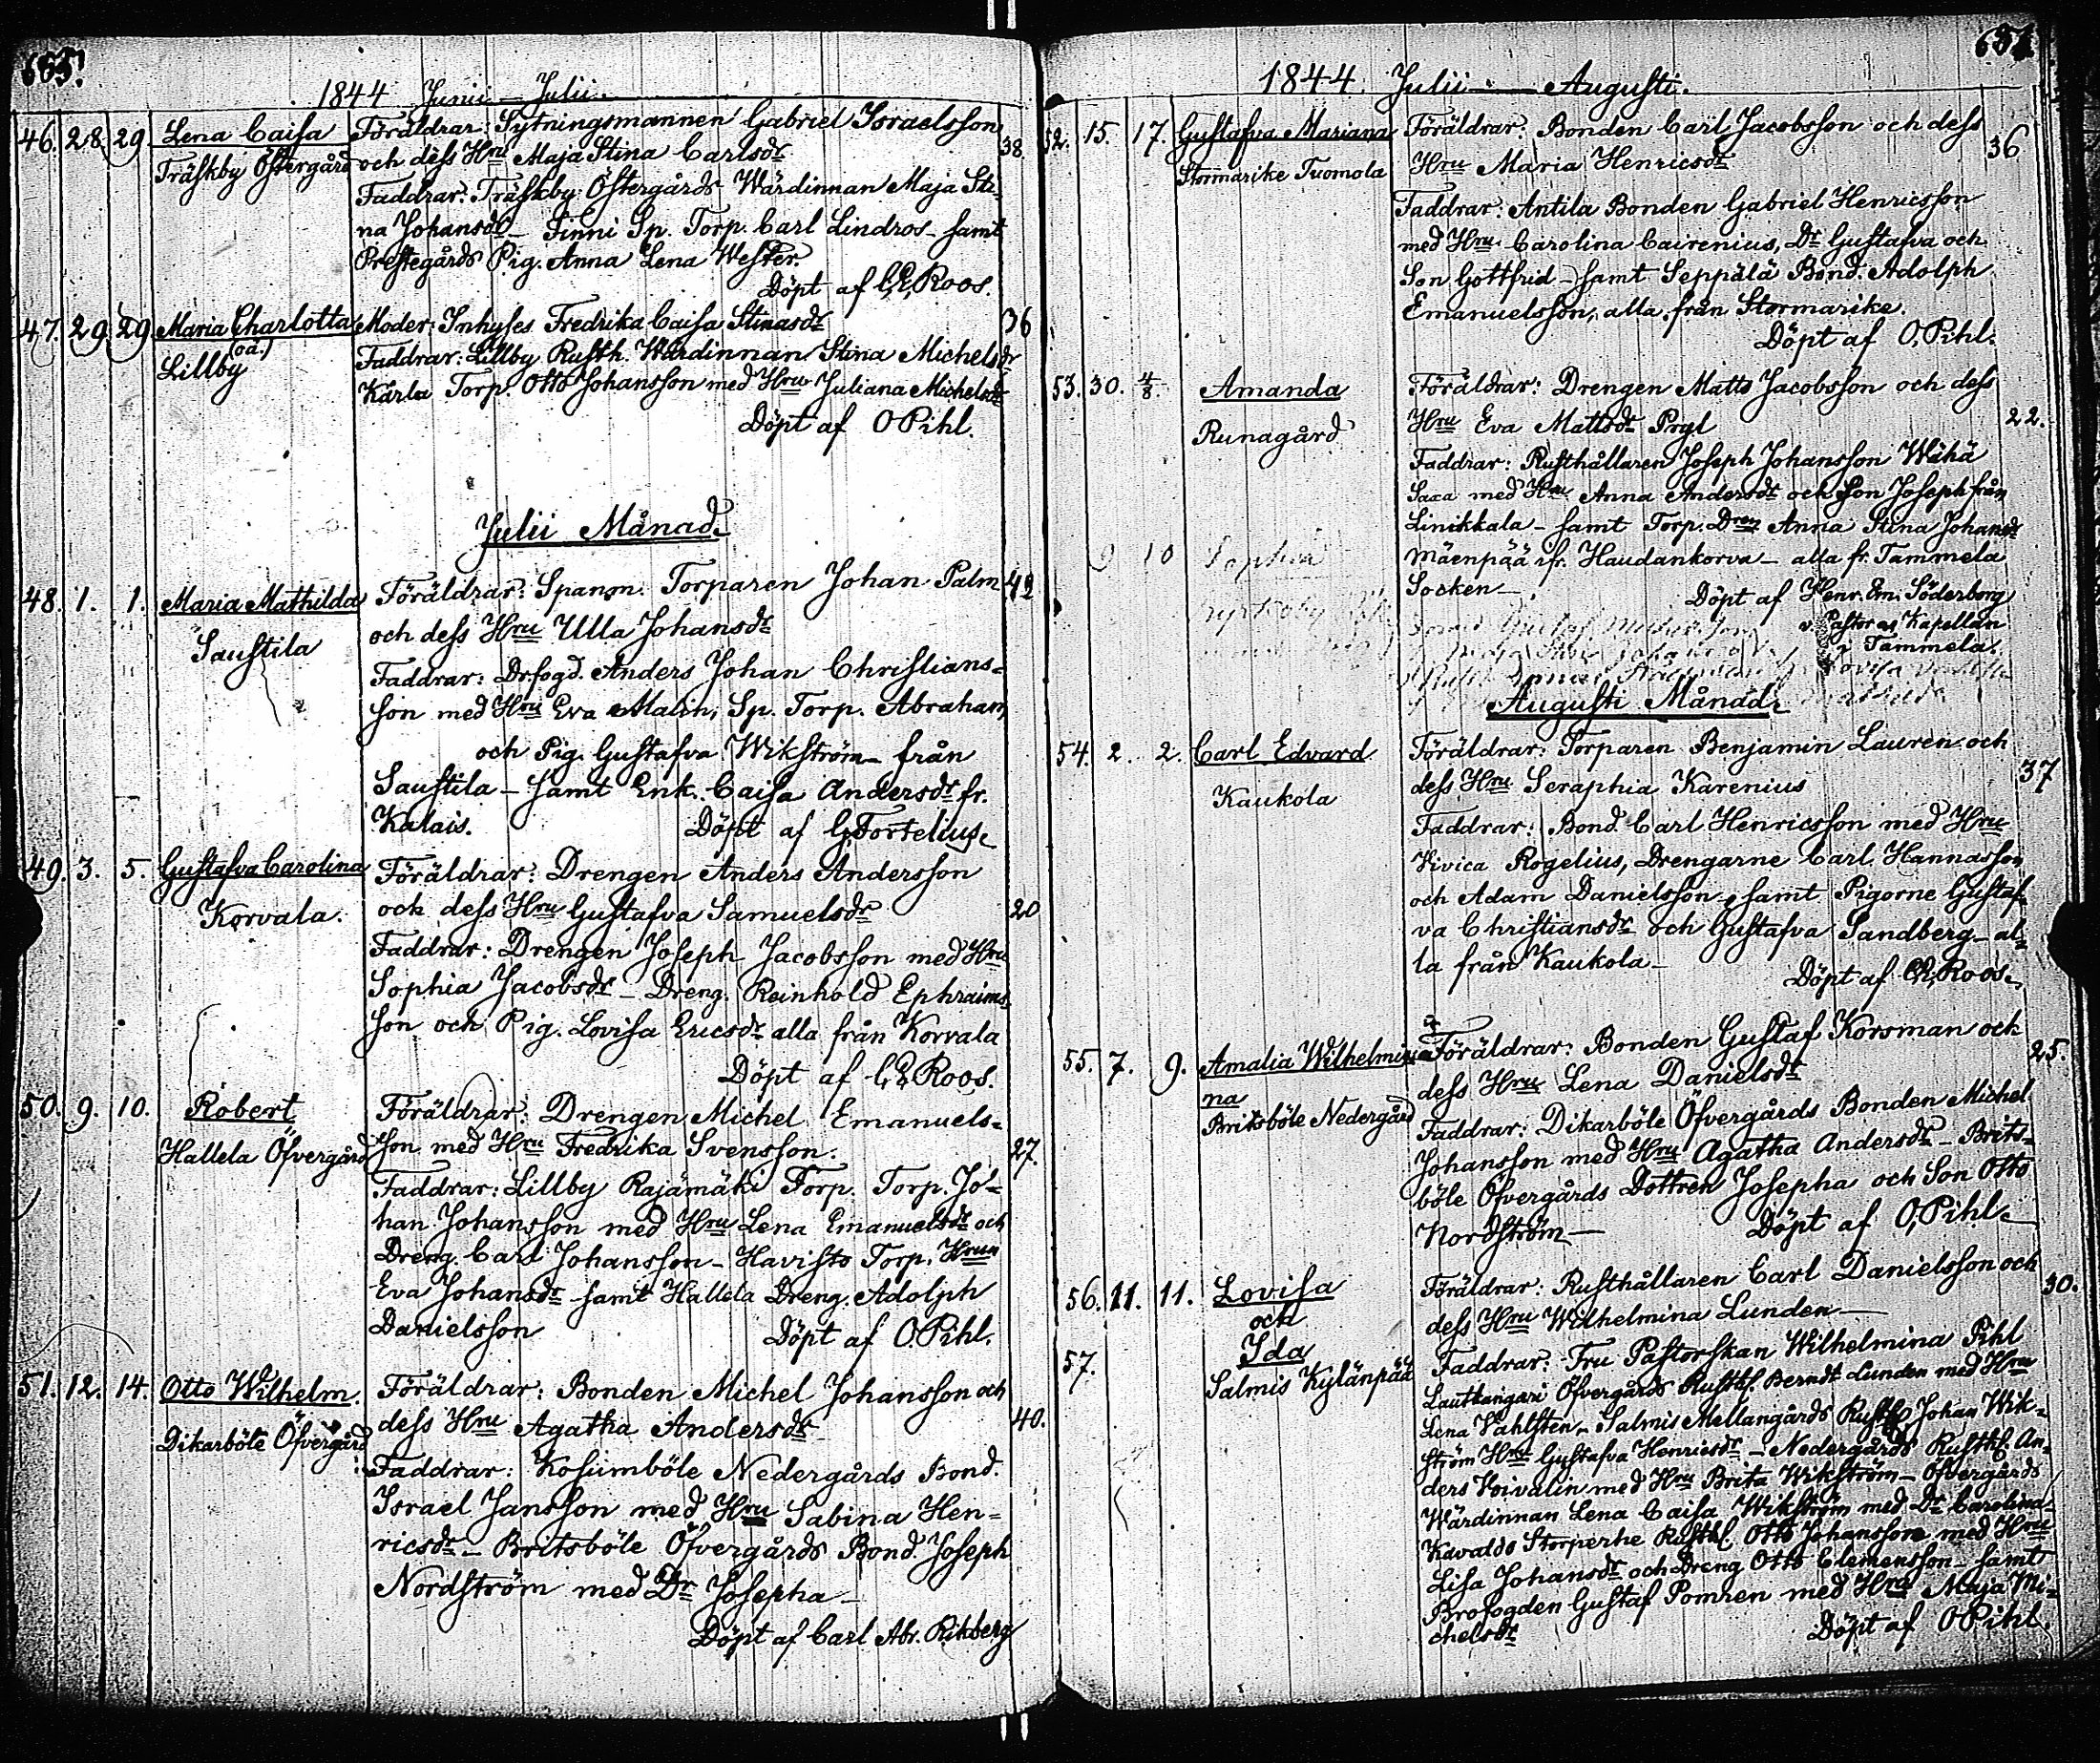 1844 Junii — Julii.
46. 28. 29. Lena Caisa Föräldrar: Sytningsmannen Gabriel Israelsson
Träskby Östergård och dess Hru Maja Stina Carlsdr 38.
Faddrar: Träskby Östergårds Wärdinnan Maja Sti-
na Johansdr – Finni Sp. Torp. Carl Lindros – samt
Prestegårds Pig. Anna Lena Wester.
Döpt af C.E. Roos.
47. 29. 29. Maria Charlotta Moder: Inhyses Fredrika Caisa Stinasdr 36
(oä.)
Lillby Faddrar: Lillby Rusth. Wärdinnan Stina Michelsdr
Kärla Torp. Otto Johansson med Hru Juliana Michelsdr
Döpt af O Pihl.
Julii Månad.
48. 1. 1. Maria Mathilda Föräldrar: Spanm. Torparen Johan Palm 42
Saustila och dess Hru Ulla Johansdr
Faddrar: Drfogd. Anders Johan Christians=
son med Hru Eva Malin, Sp. Torp. Abraham
och Pig. Gustafva Wikström – från
Saustila – samt Enk. Caisa Andersdr fr.
Kalais. Döpt af G. Fortelius.
49. 3. 5. Gustafva Carolina Föräldrar: Drengen Anders Andersson
Korvala. och dess Hru Gustafva Samuelsdr 20
Faddrar: Drengen Joseph Jacobsson med Hru
Sophia Jacobsdr – Dreng. Reinhold Ephraims
son och Pig. Lovisa Ericsdr alla från Korvala
Döpt af C.E. Roos.
50. 9. 10. Robert Föräldrar: Drengen Michel Emanuels=
Hallela Öfvergård son med Hru Fredrika Svensson. 27.
Faddrar: Lillby Rajämäki Torp. Torp. Jo=
han Johansson med Hru Lena Emanuelsdr och
Dreng. Carl Johansson – Havisto Torp. Hrun
Eva Johansdr – samt Hallela Dreng. Adolph
Danielsson Döpt af O. Pihl.
51. 12. 14. Otto Wilhelm. Föräldrar: Bonden Michel Johansson och
Dikarböle Öfvergård dess Hru Agatha Andersdr 40.
Faddrar: Kosumböle Nedergårds Bond.
Israel Jansson med Hru Sabina Hen=
ricsdr – Britsböle Öfvergårds Bond. Joseph
Nordström med Dr Josepha –
Döpt af Carl Abr. Rikberg
1844. Julii — Augusti.
52. 15. 17. Gustafva Mariana Föräldrar: Bonden Carl Jacobsson och dess 36
Stormarike Tuomola Hru Maria Henricsdr
Faddrar: Antila Bonden Gabriel Henricsson
med Hru Carolina Cairenius, Dr Gustafva och
Son Gottfrid – samt Seppälä Bond. Adolph
Emanuelsson, alla från Stormarike.
Döpt af O. Pihl.
53. 30. 4/8. Amanda Föräldrar: Drengen Matts Jacobsson och dess
Runagård Hru Eva Mattsdr Pryl 22.
Faddrar: Rusthållaren Joseph Johansson Wähä
Saxa med Hru Anna Andersdr och Son Joseph från
Linikkala – samt Torp. Dren Anna Stina Johansdr
Mäenpää fr. Haudankorva – alla fr. Tammela
Socken – Döpt af Henr. Em. Söderborg
v. Pastor och Kapellan
i Tammela.
9 10 Sophia
Augusti Månad.
54. 2. 2. Carl Edvard Föräldrar: Torparen Benjamin Lauren och 37
Kaukola dess Hru Seraphia Karenius
Faddrar: Bond. Carl Henricsson med Hru
Vivica Rogelius, Drengarne Carl Hannasson
och Adam Danielsson – samt Pigorne Gustaf=
va Christiansdr och Gustafva Sandberg – al=
la från Kaukola – Döpt af C.E. Roos.
55. 7. 9. Amalia Wilhelmi= Föräldrar: Bonden Gustaf Korsman och 25.
na dess Hru Lena Danielsdr
Britsböle Nedergård Faddrar: Dikarböle Öfvergårds Bonden Michel
Johansson med Hru Agatha Andersdr – Brits=
böle Öfvergårds Dottren Josepha och Son Otto
Nordström – Döpt af O. Pihl.
56. 11. 11. Lovisa Föräldrar: Rusthållaren Carl Danielsson och 30.
och dess Hru Wilhelmina Lunden –
57. Ida Faddrar: Fru Pastorskan Wilhelmina Pihl
Salmis Kylänpää Lautkangari Öfvergårds Rusth. Berndt Lunden med Hru
Lena Vahlsten – Salmis Mellangårds Rusth. Johan Wik=
ström Hru Gustafva Henricsdr – Nedergårds Rusth. An=
ders Voivalin med Hru Brita Wikström – Öfvergårds
Wärdinnan Lena Caisa Wikström med Dr Carolina
Storperhe Rusth. Otto Johansson med Hru
Lisa Johansdr och Dreng Otto Clemensson – samt
Brofogden Gustaf Pomren med Hru Maja Mi=
chelsdr Döpt af O Pihl.